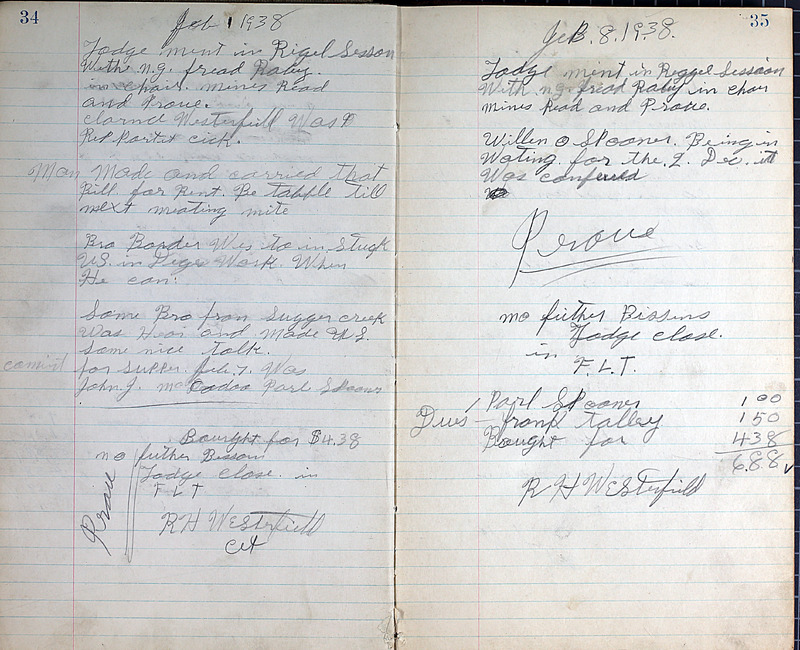 34
Feb 1 1938
Lodge ment in Rigel Sesson
With n.g. fread Raby.
in chair. mines Read
and Prove.
clarnce Westerfill Was
Rep Portet cick.
Man Made and carried that
Bill for Rent. Be tabple till
next meating nite
Bro Border Wes to in Stuck
US. in Degre Work. When
He can.
Some Bro from Sugger creek
Was Hear and Made US.
Some nice talk.
comitt for Supper. feb. 7. Was
John. J. mc Cadoo Parl Spooner
Bought for $4.38
no futher Bissens
Lodge close. in
F L T
Prove
R H Westerfield
35
FeB. 8. 19.38.
Lodge ment in Reggel Session
With n.g. fread Raby in chair
mines Read and Prove.
Willen O Spooner. Being in
Wating for the. 2. Dec. it
Was conferred
Prove
no futher Bissens
Lodge close.
in
F. L. T.
Dues Parl Spooner 1 00
frank talley 1 50
Bought for 4 38
6.88
R H Westerfield